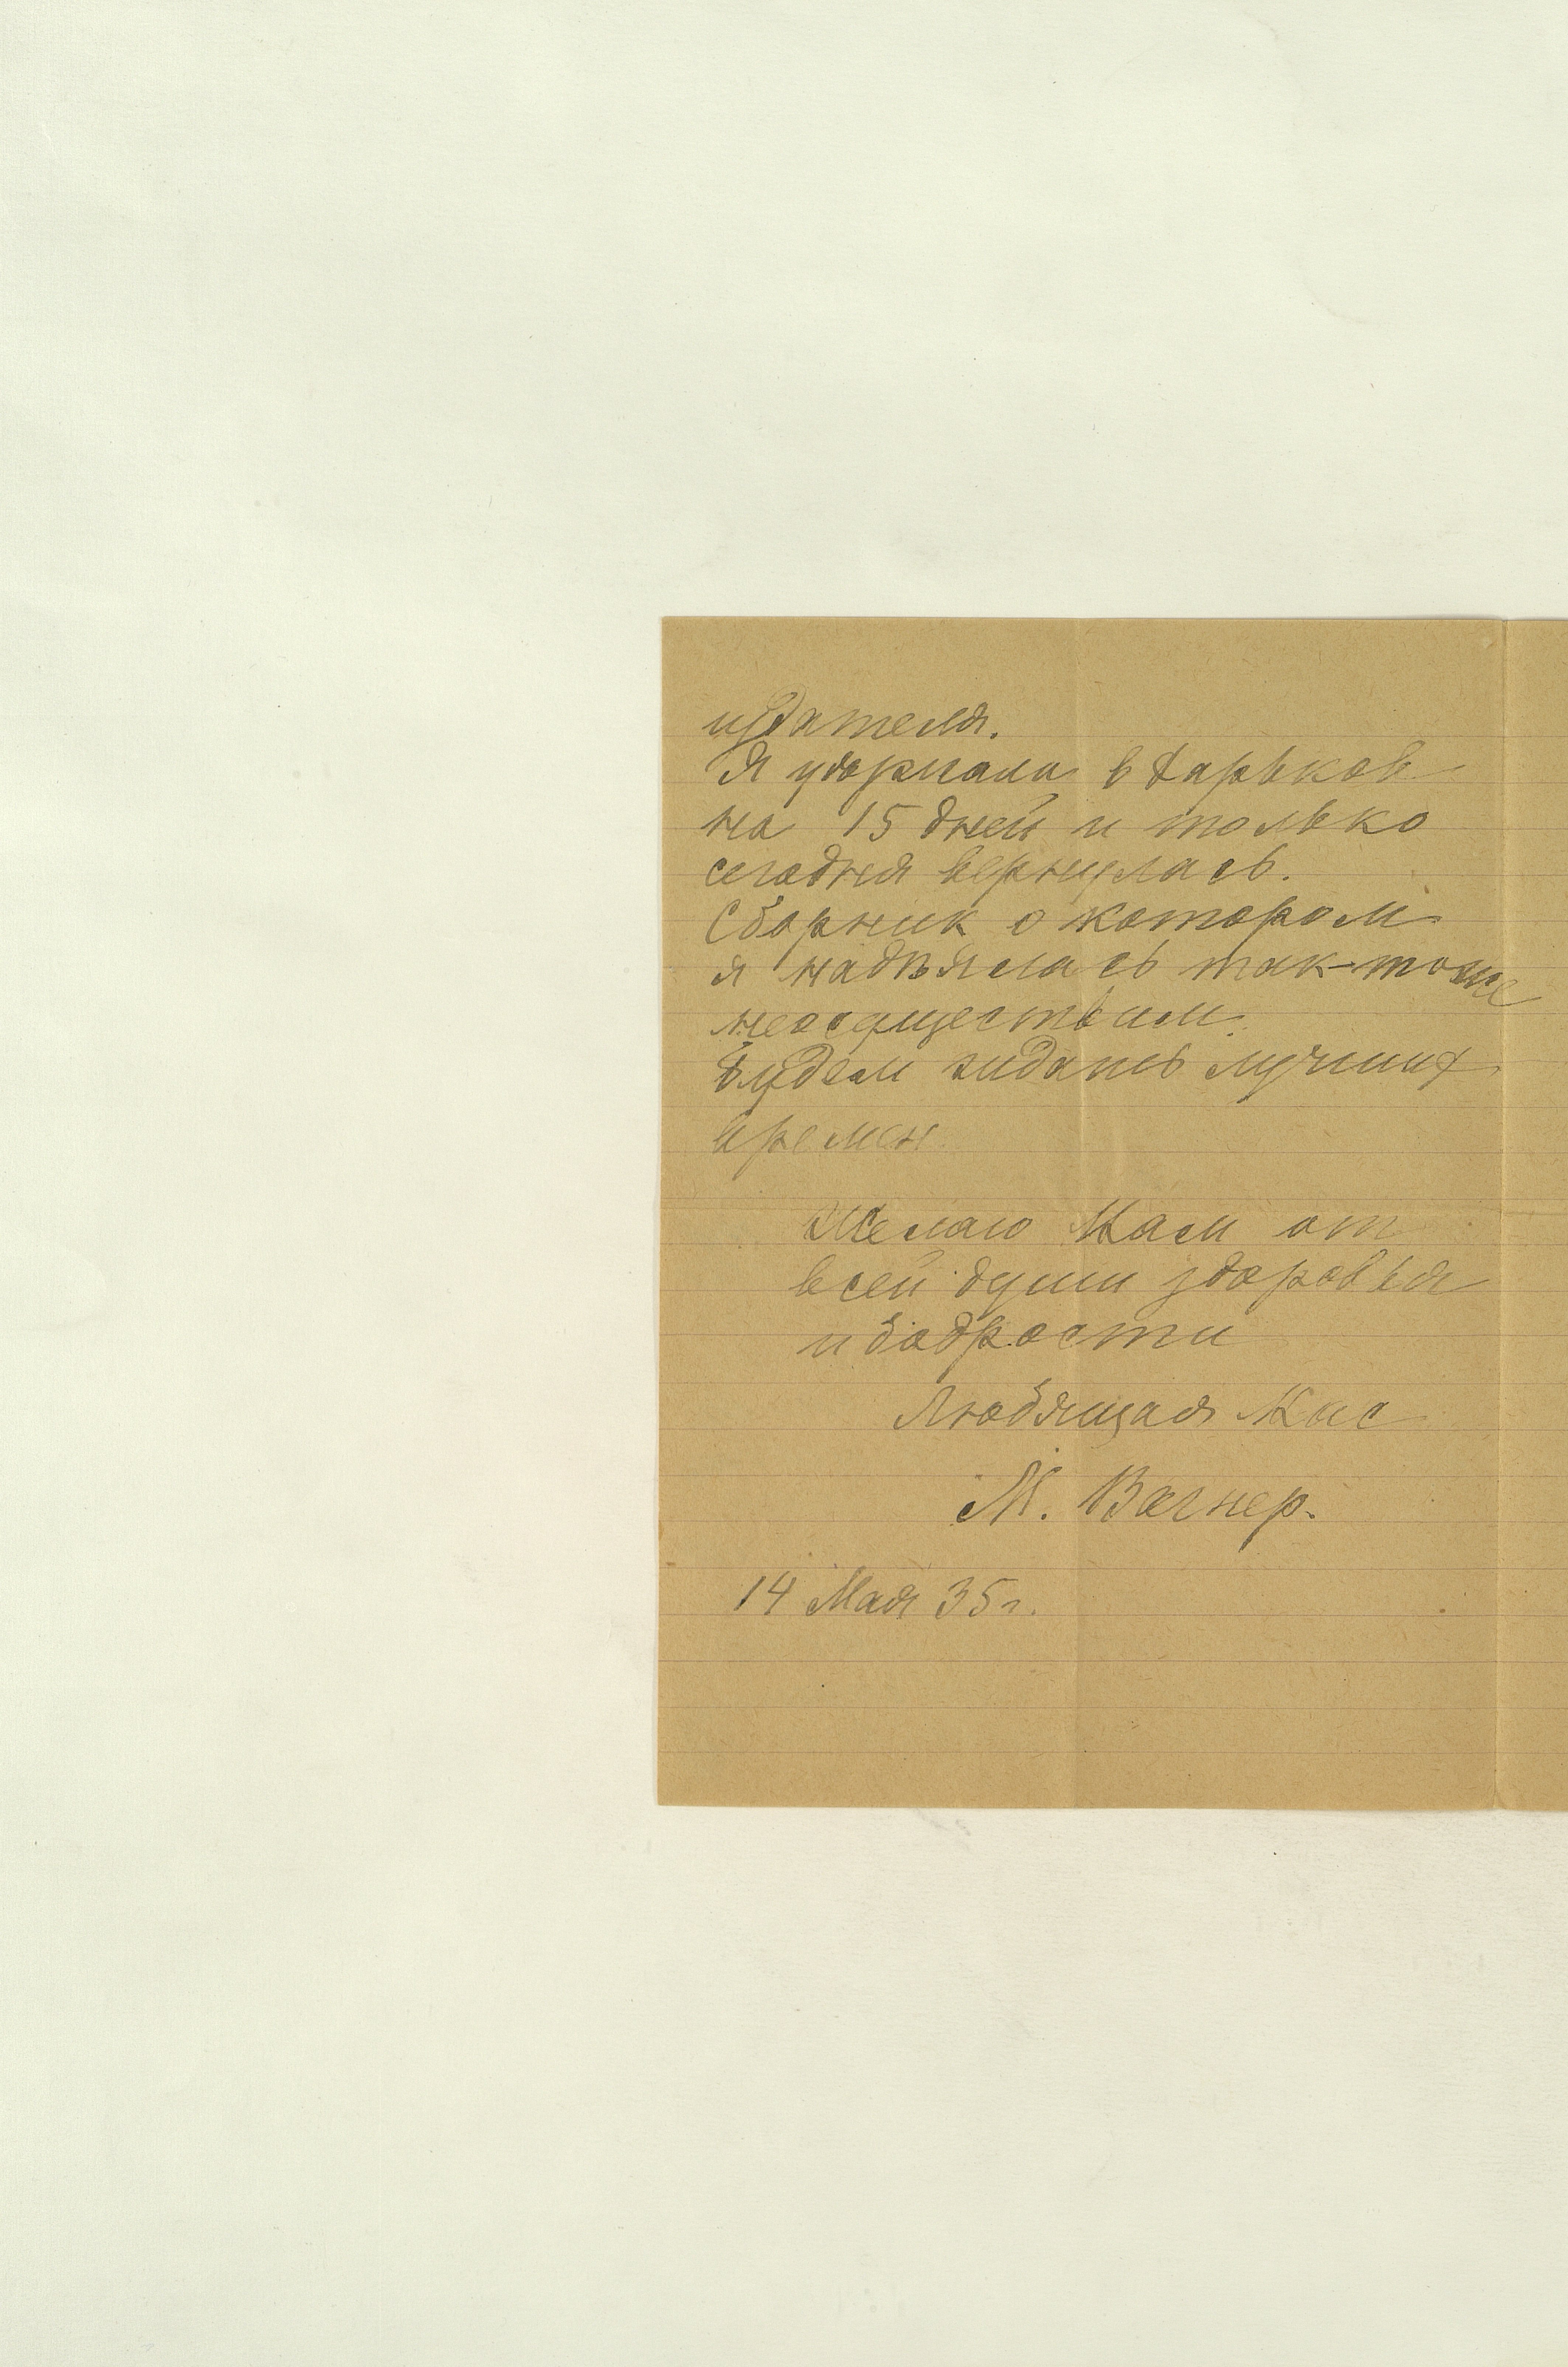 издателя.
Я уезжала в Харьков
на 15 дней и только
сегодня вернулась.
Сборник о котором
я надѣялась так-тоже
неосуществим.
Будем жидать лучших
времен.
Желаю Вам от
всей души здоровья
и бодрости
Любящая Вас
М. Вагнер.
14 Мая 35 г.